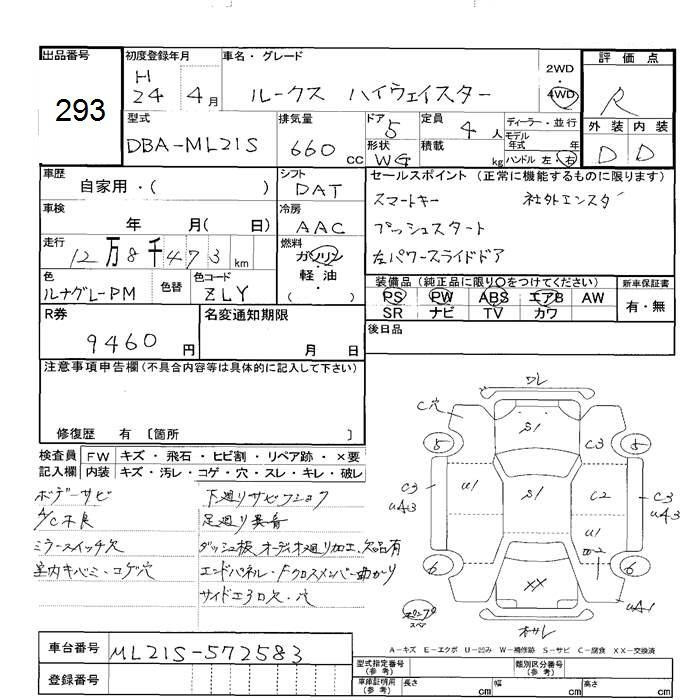 出品番号
293
初度登録年月
H
24 4月
車名・グレード
ルークス ハイウェイスター
2WD
4WD
評価点
R
外装 内装
D D
型式
DBA-ML21S
排気量
660 cc
ドア
5
形状
定員
4 人
積載
kg
ディーラー・並行
モデル
年式 年
ハンドル 左・右
車歴
自家用・( )
シフト
DAT
セールスポイント (正常に機能するものに限ります)
スマートキー 社外エンスタ
プッシュスタート
左パワースライドドア
車検
年 月( 日)
冷房
AAC
走行
12万8千473km
燃料
ガソリン
軽・油
( )
色
ルナグレーPM
色替
色コード
ZLY
装備品 (純正品に限り○をつけてください)
PS PW ABS エアB AW
SR ナビ TV カワ
新車保証書
有・無
R券
9460円
名変通知期限
月 日
後日品
注意事項申告欄 (不具合内容等は具体的に記入して下さい)
修復歴 有 〔箇所 〕
検査員
記入欄
FW キズ・飛石・ヒビ割・リペア跡・×要
内装 キズ・汚レ・コゲ・穴・スレ・キレ・破レ
ボデーサビ
A/C不良
ミラースイッチ欠
室内キバミ・コゲ穴
下廻りサビフショク
足廻り異音
ダッシュ板、オーディオ廻り加工、欠品有
エンドパネル・Fクロスメンバー曲がり
サイドエプロ欠・穴
ワレ
C穴
S1
C3
5
5
C3
UA3
U1
S1
C2
C3
UA3
U1
6
6
XX
UA1
スペア
A-キズ E-エクボ U-凹み W-補修跡 S-サビ C-腐食 XX-交換済
車台番号
ML21S-572583
登録番号
型式指定番号
(参考)
類別区分番号
(参考)
車庫証明用
(参考)
長さ cm
幅 cm
高さ cm